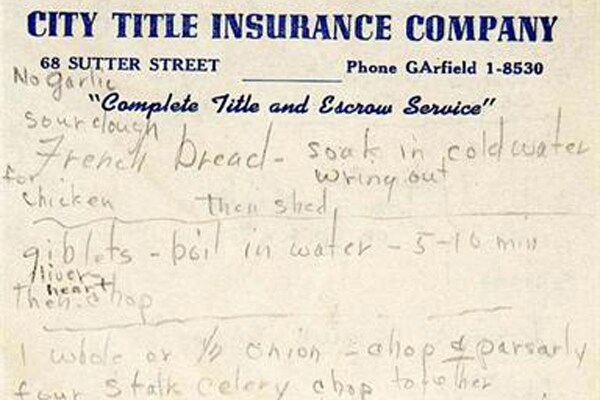 CITY TITLE INSURANCE COMPANY
68 SUTTER STREET Phone GArfield 1-8530
"Complete Title and Escrow Service"
No Garlic
sourdough
French bread - soak in cold water
wring out
for
chicken then shed
giblets - boil in water - 5-10 min
livers
heart
Then chop
1 whole or 1/2 onion - chop & parsarly
four stalk celery chop together